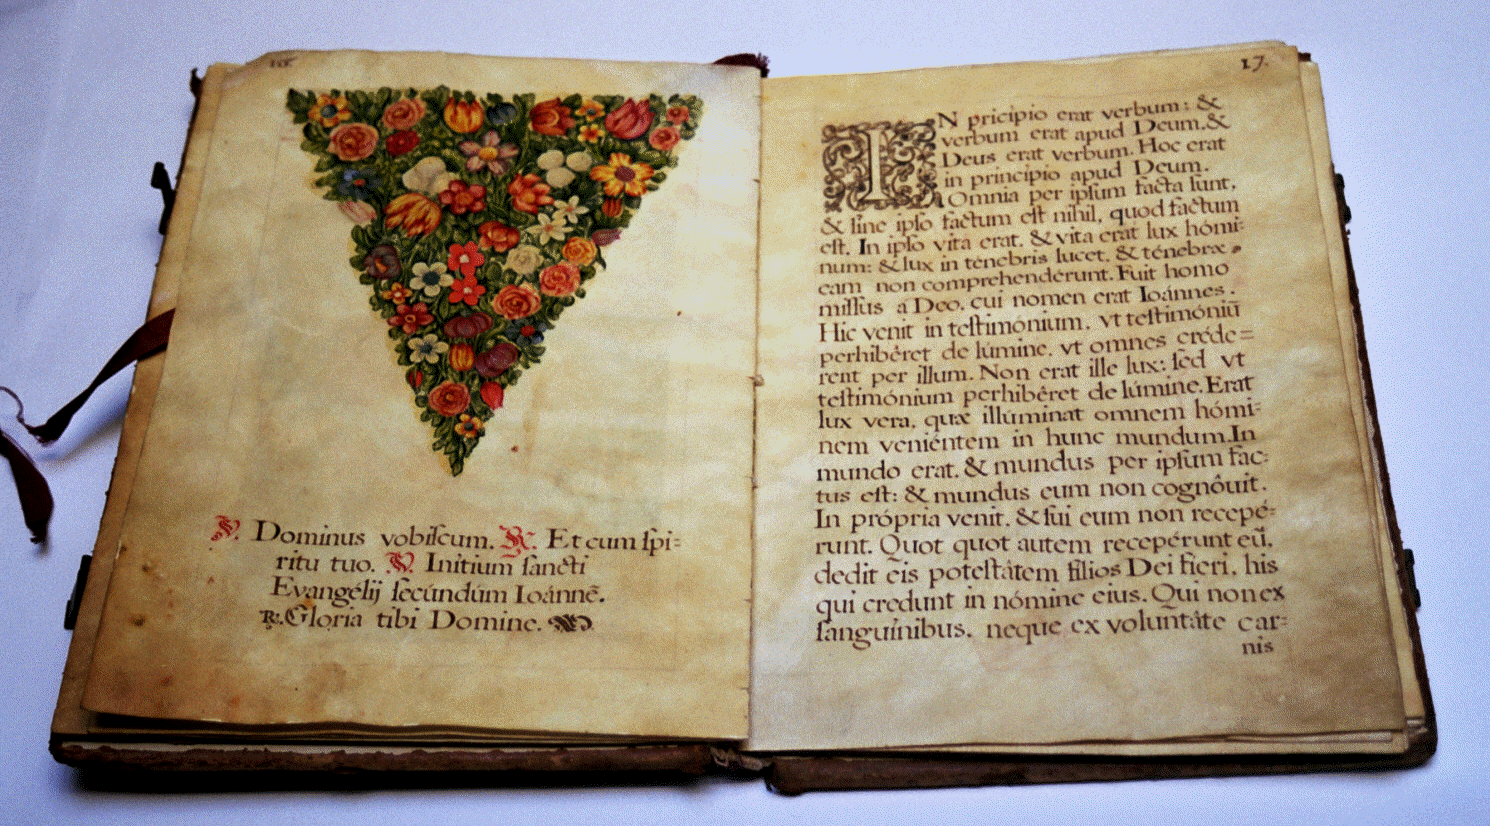 16.
℣. Dominus vobiſcum. ℟. Et cum ſpi=
ritu tuo. ℣. Initium ſancti
Evangélij ſecúndúm Ioánnē.
℟. Gloria tibi Domine.
17.
IN pricipio erat verbum: &
verbum erat apud Deum. &
Deus erat verbum. Hoc erat
in principio apud Deum.
Omnia per ipſum facta ſunt,
& ſine ipſo factum eſt nihil, quod factum
eſt. In ipſo vita erat, & vita erat lux hómi=
num: & lux in ténebris lucet, & ténebræ
eam non comprehendérunt. Fuit homo
miſſus a Deo, cui nomen erat Ioánnes.
Hic venit in teſtimónium, vt teſtimóniū
perhibéret de lúmine, vt omnes créde=
rent per illum. Non erat ille lux: ſed vt
teſtimónium perhibéret de lúmine. Erat
lux vera, quæ illúminat omnem hómi=
nem veniéntem in hunc mundum. In
mundo erat, & mundus per ipſum fac=
tus eſt: & mundus eum non cognôuit.
In própria venit, & ſui eum non recepé=
runt. Quot quot autem recepérunt eū,
dedit eis poteſtâtem filios Dei fieri, his
qui credunt in nómine eius. Qui non ex
ſanguínibus, neque ex voluntâte car=
nis